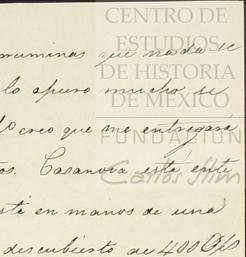 CENTRO DE
ESTUDIOS
DE HISTORIA
DE MÉXICO
FUNDACIÓN
Carlos Slim
que nada se
lo apuro mucho se
creo que me entregará
os. Casanova está ente
sté en manos de una
descubierto de 400